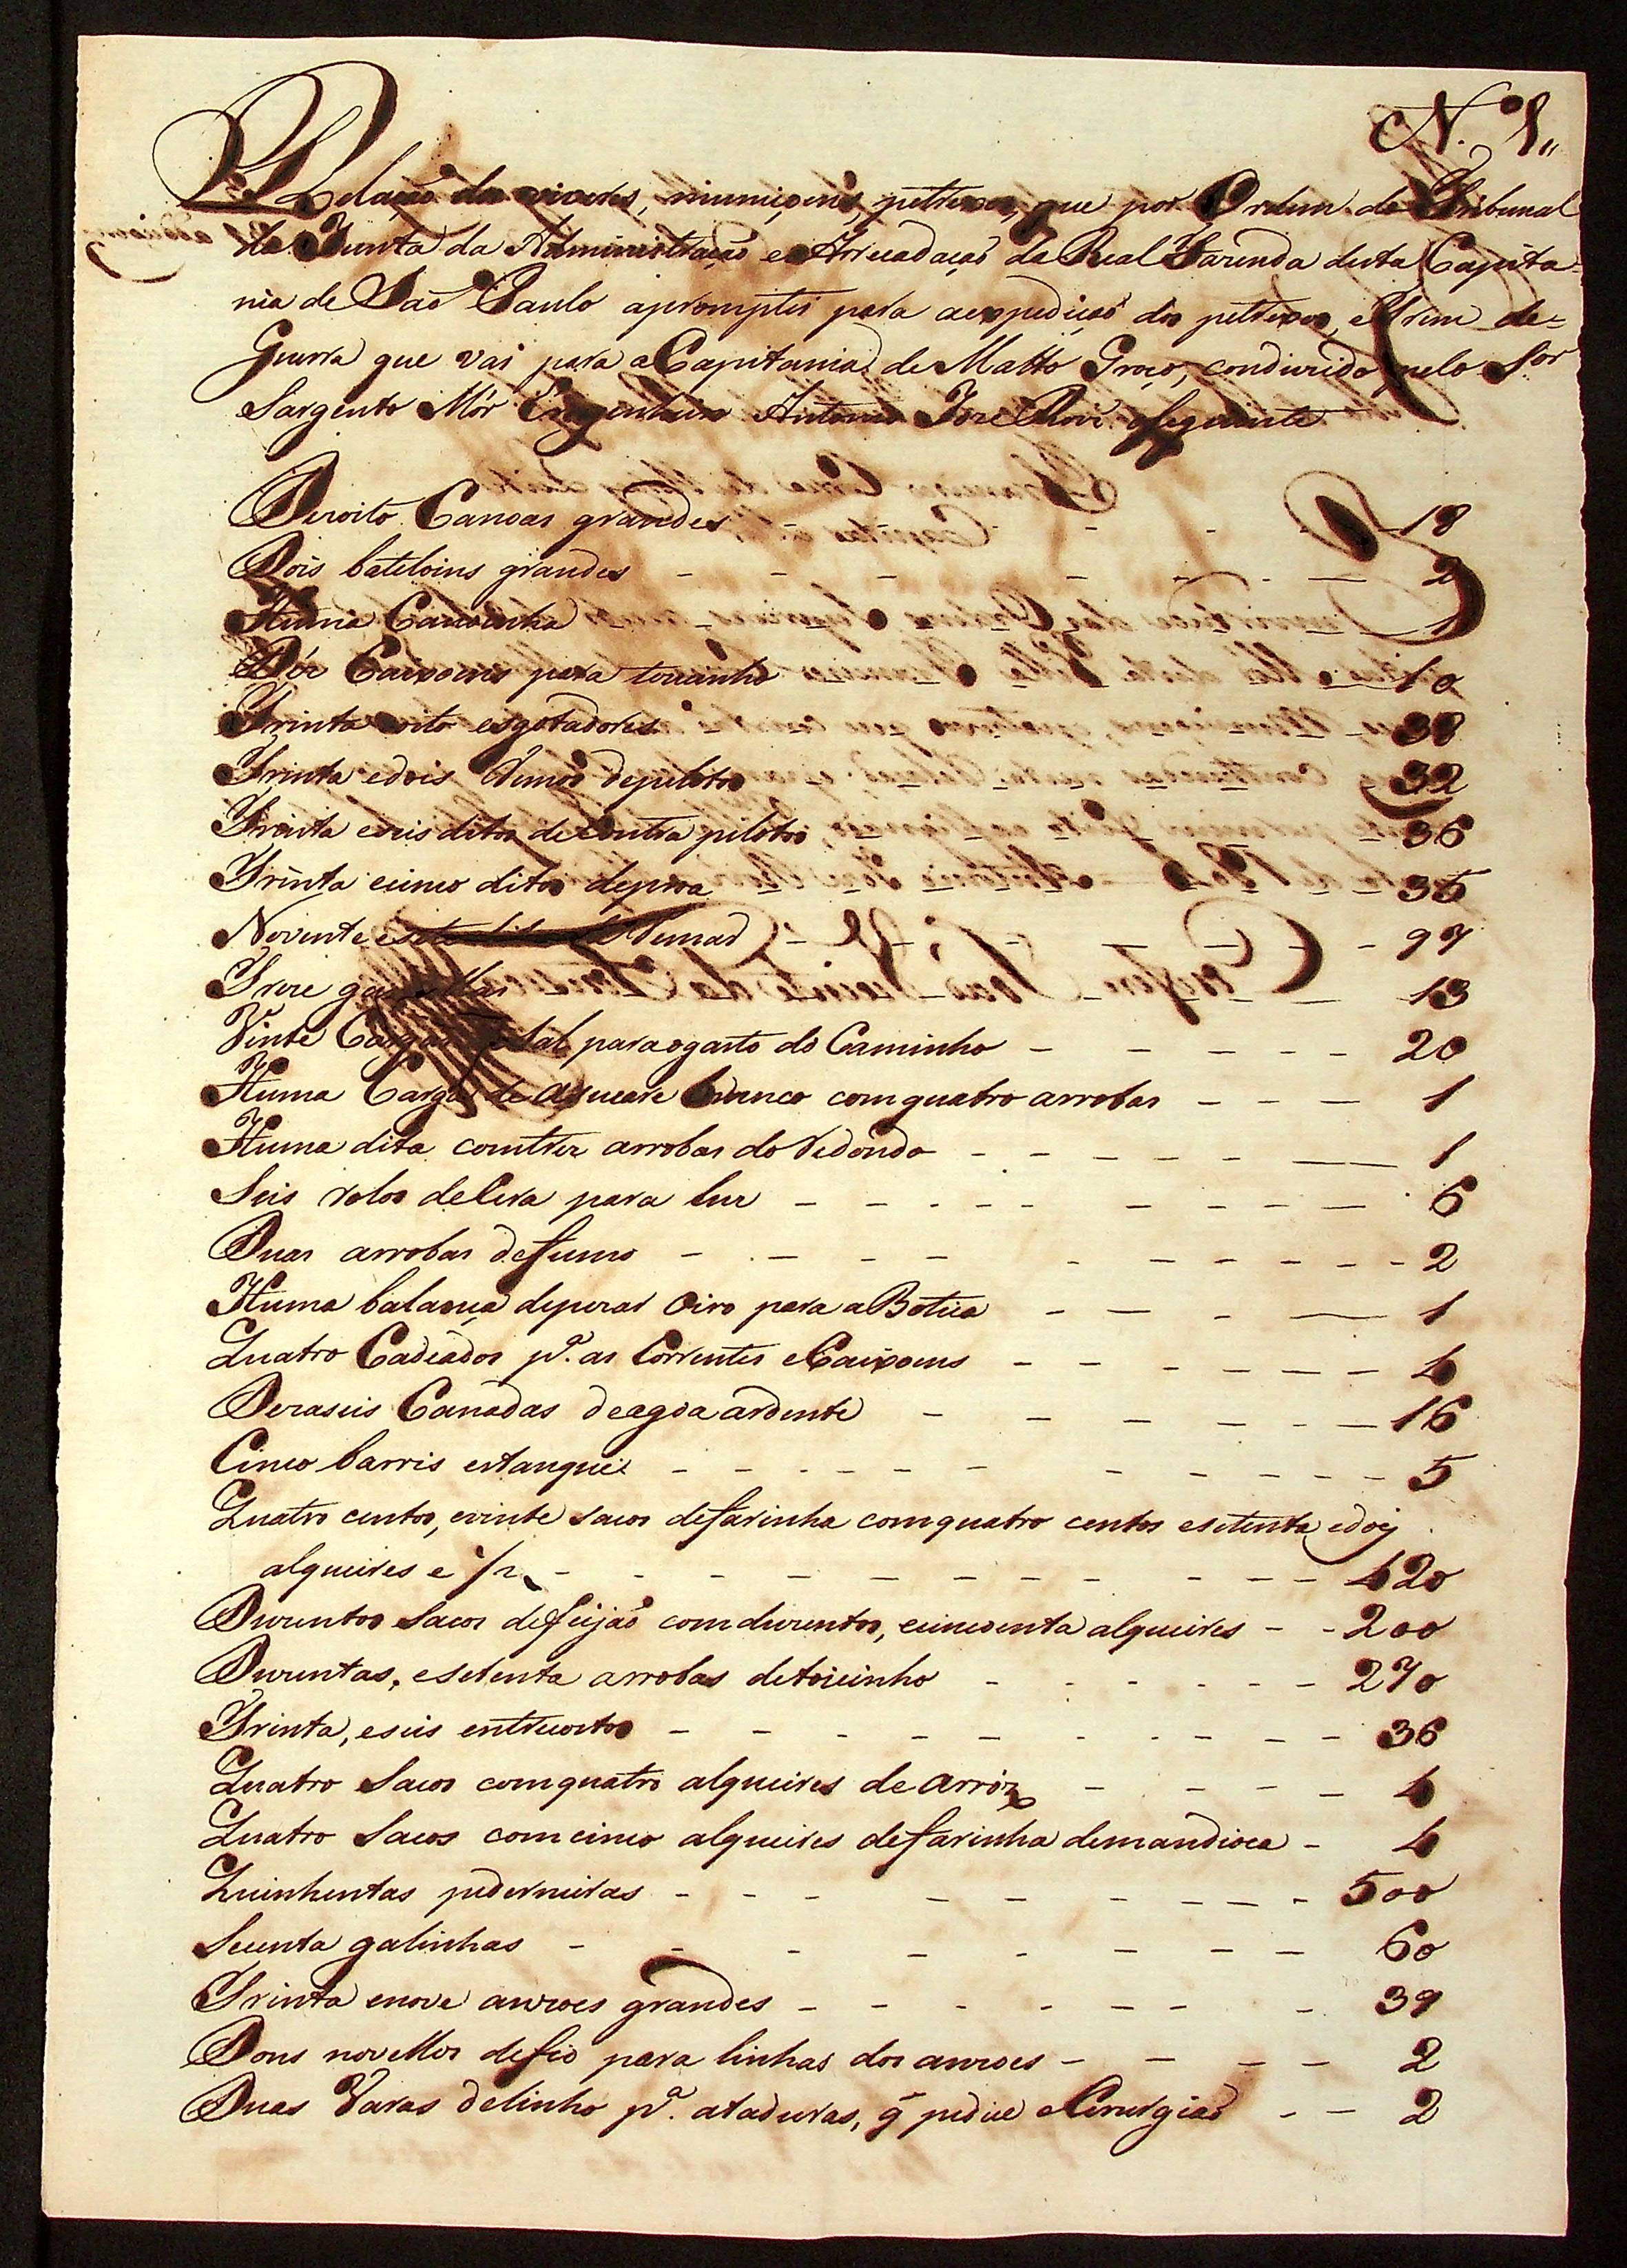 N.º 1„
Relação dos viveres, muniçoens, petrexos, que por Ordem do Tribunal
da Junta da Administração e Arrecadação da Real Fazenda desta Capita=
nia de São Paulo apromptei para aexpedição dos petrexos, eTrem de=
Guerra que vai para aCapitania de Matto Groço, condurido pelo Sor
Sargento Mór Engenheiro Antonio Joze oSeguinte
Dezoito Canoas grandes - - - 18
Dois bateloins grandes - - - 2
Huma Canoinha - - - 1
Déz Caixoens para toucinho - - - 10
Trinta eoito esgotadores - - - 38
Trinta edois Remos depilotos - - - 32
Trinta eseis ditos deContra pilotos - - - 36
Trinta ecinco ditos deproa - - - 35
Noventa esete Remos - - - 97
Treze - - - 13
Vinte Cargas deSal paraogasto do Caminho - - - 20
Huma Carga de açucare branco comquatro arrobas - - - 1
Huma dita comtrez arrobas do redondo - - - 1
Seis rolos deCera para luz - - - 6
Duas arrobas defumo - - - 2
Huma balança depezar Oiro para aBotica - - - 1
Quatro Cadeados pª. as Correntes eCaixoens - - - 4
Dezaseis Canadas deagoa ardente - - - 16
Cinco barris estanques - - - 5
Quatro centos, evinte sacos defarinha comquatro centos esetenta edois
alqueires e 1/2 - - - 420
Duzentos Sacos defeijão comduzentos, ecincoenta alqueires - - 200
Duzentas, esetenta arrobas detoicinho - - - 270
Trinta, eseis entrecostos - - - 36
Quatro Sacos comquatro alqueires de arróz - - - 4
Quatro Sacos comcinco alqueires defarinha demandioca - 4
Quinhentas pederneiras - - - 500
Secenta galinhas - - - 60
Trinta enove anzoes grandes - - - 39
Dous novellos defio para linhas dos anzoes - - - 2
Duas Varas delinho pª. ataduras, q̃ pedice oCirurgião - - 2